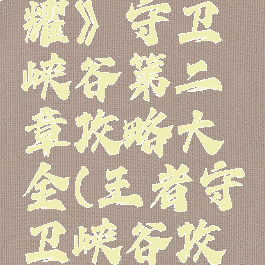 耀》守卫
峡谷第二
章攻略大
全(王者守
卫峡谷攻